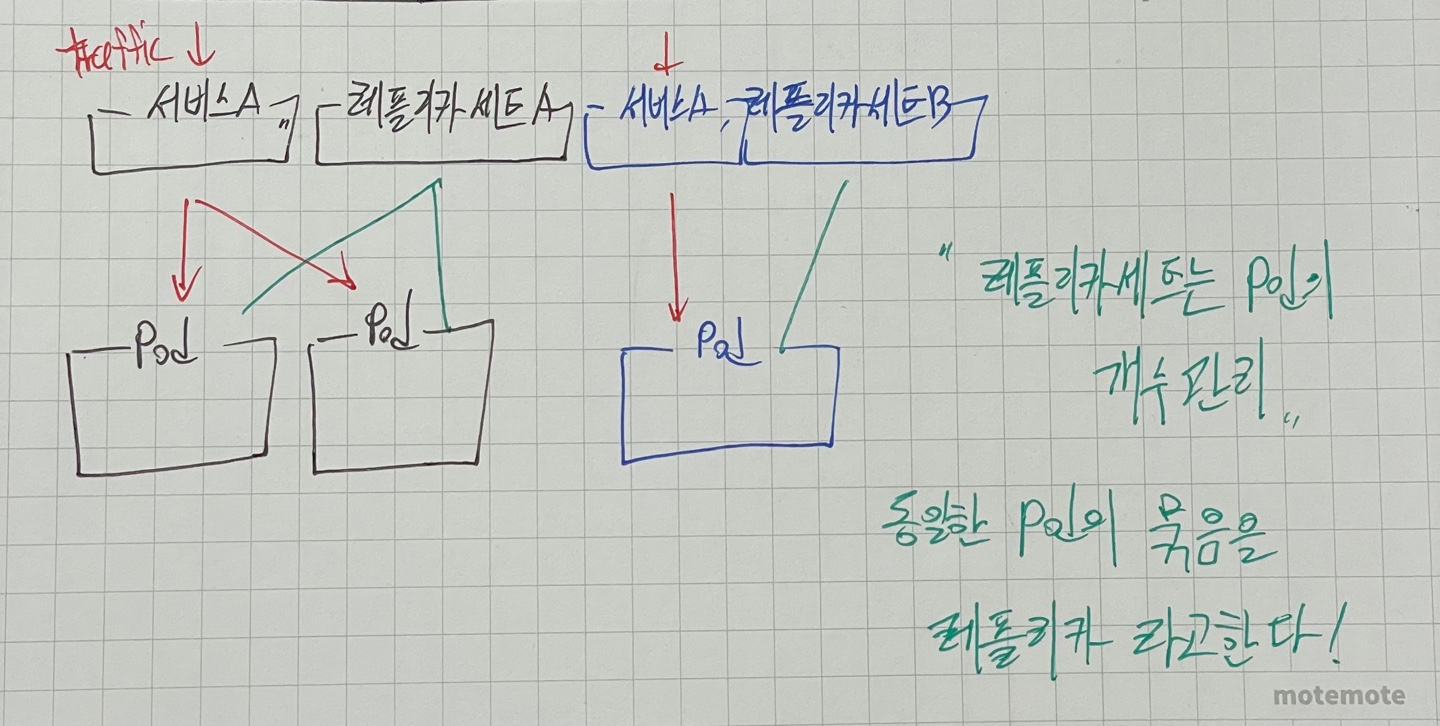 traffic
서비스A 레플리카세트A 서비스A, 레플리카세트B
Pod Pod Pod
" 레플리카세트는 Pod의
개수 관리 "
동일한 Pod의 묶음을
레플리카 라고한다!
motemote